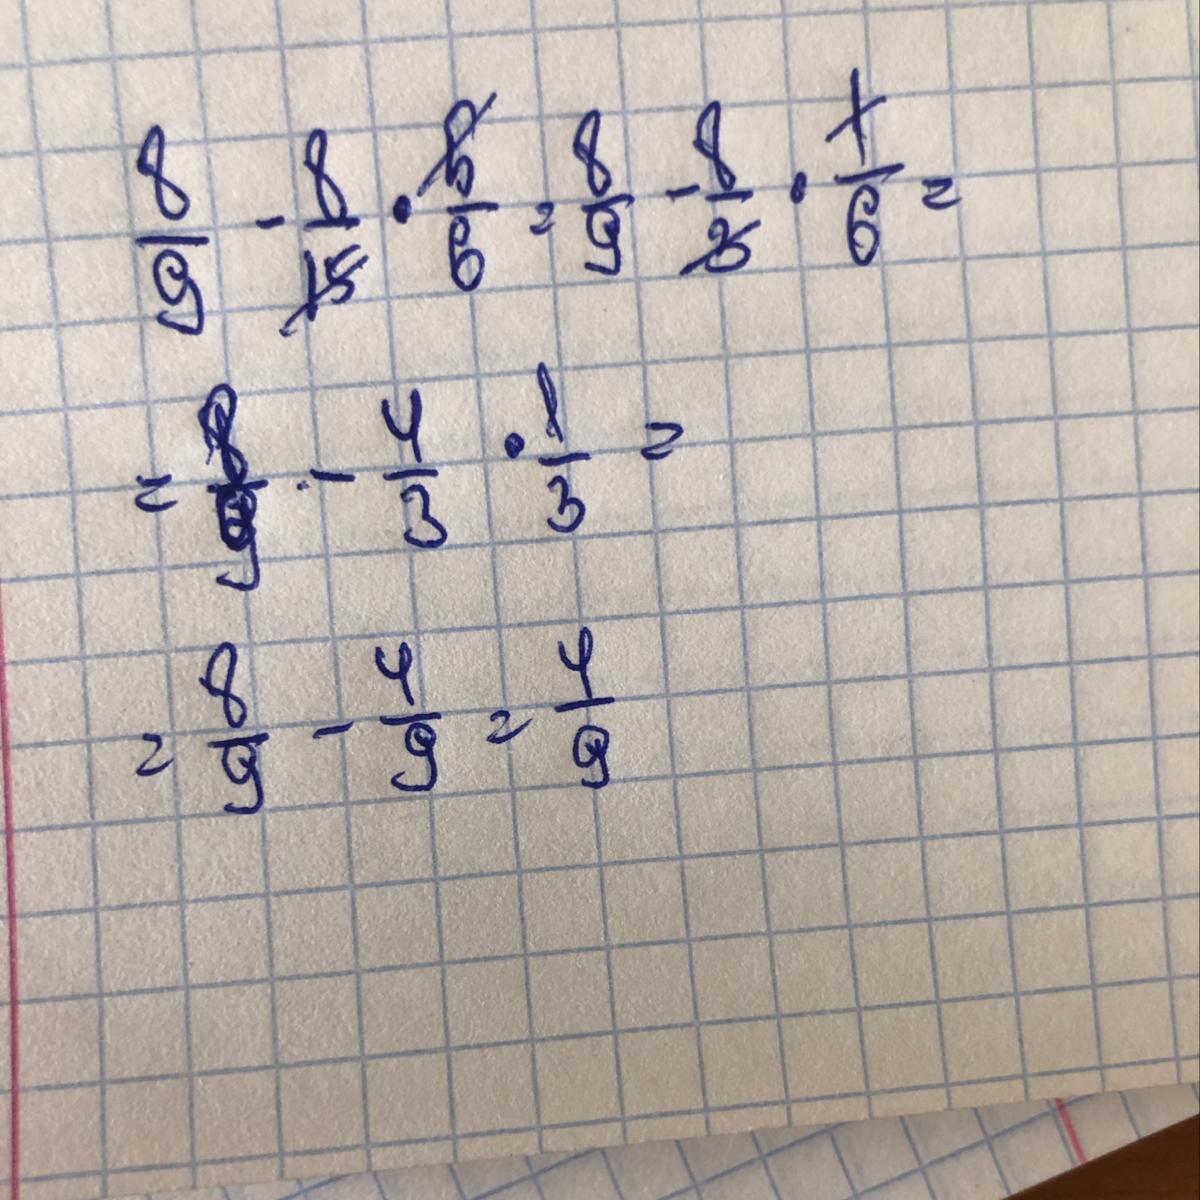 8/9 - 8/15 · 5/6 = 8/9 - 8/3 · 1/6 =
= 8/9 - 4/3 · 1/3 =
= 8/9 - 4/9 = 4/9